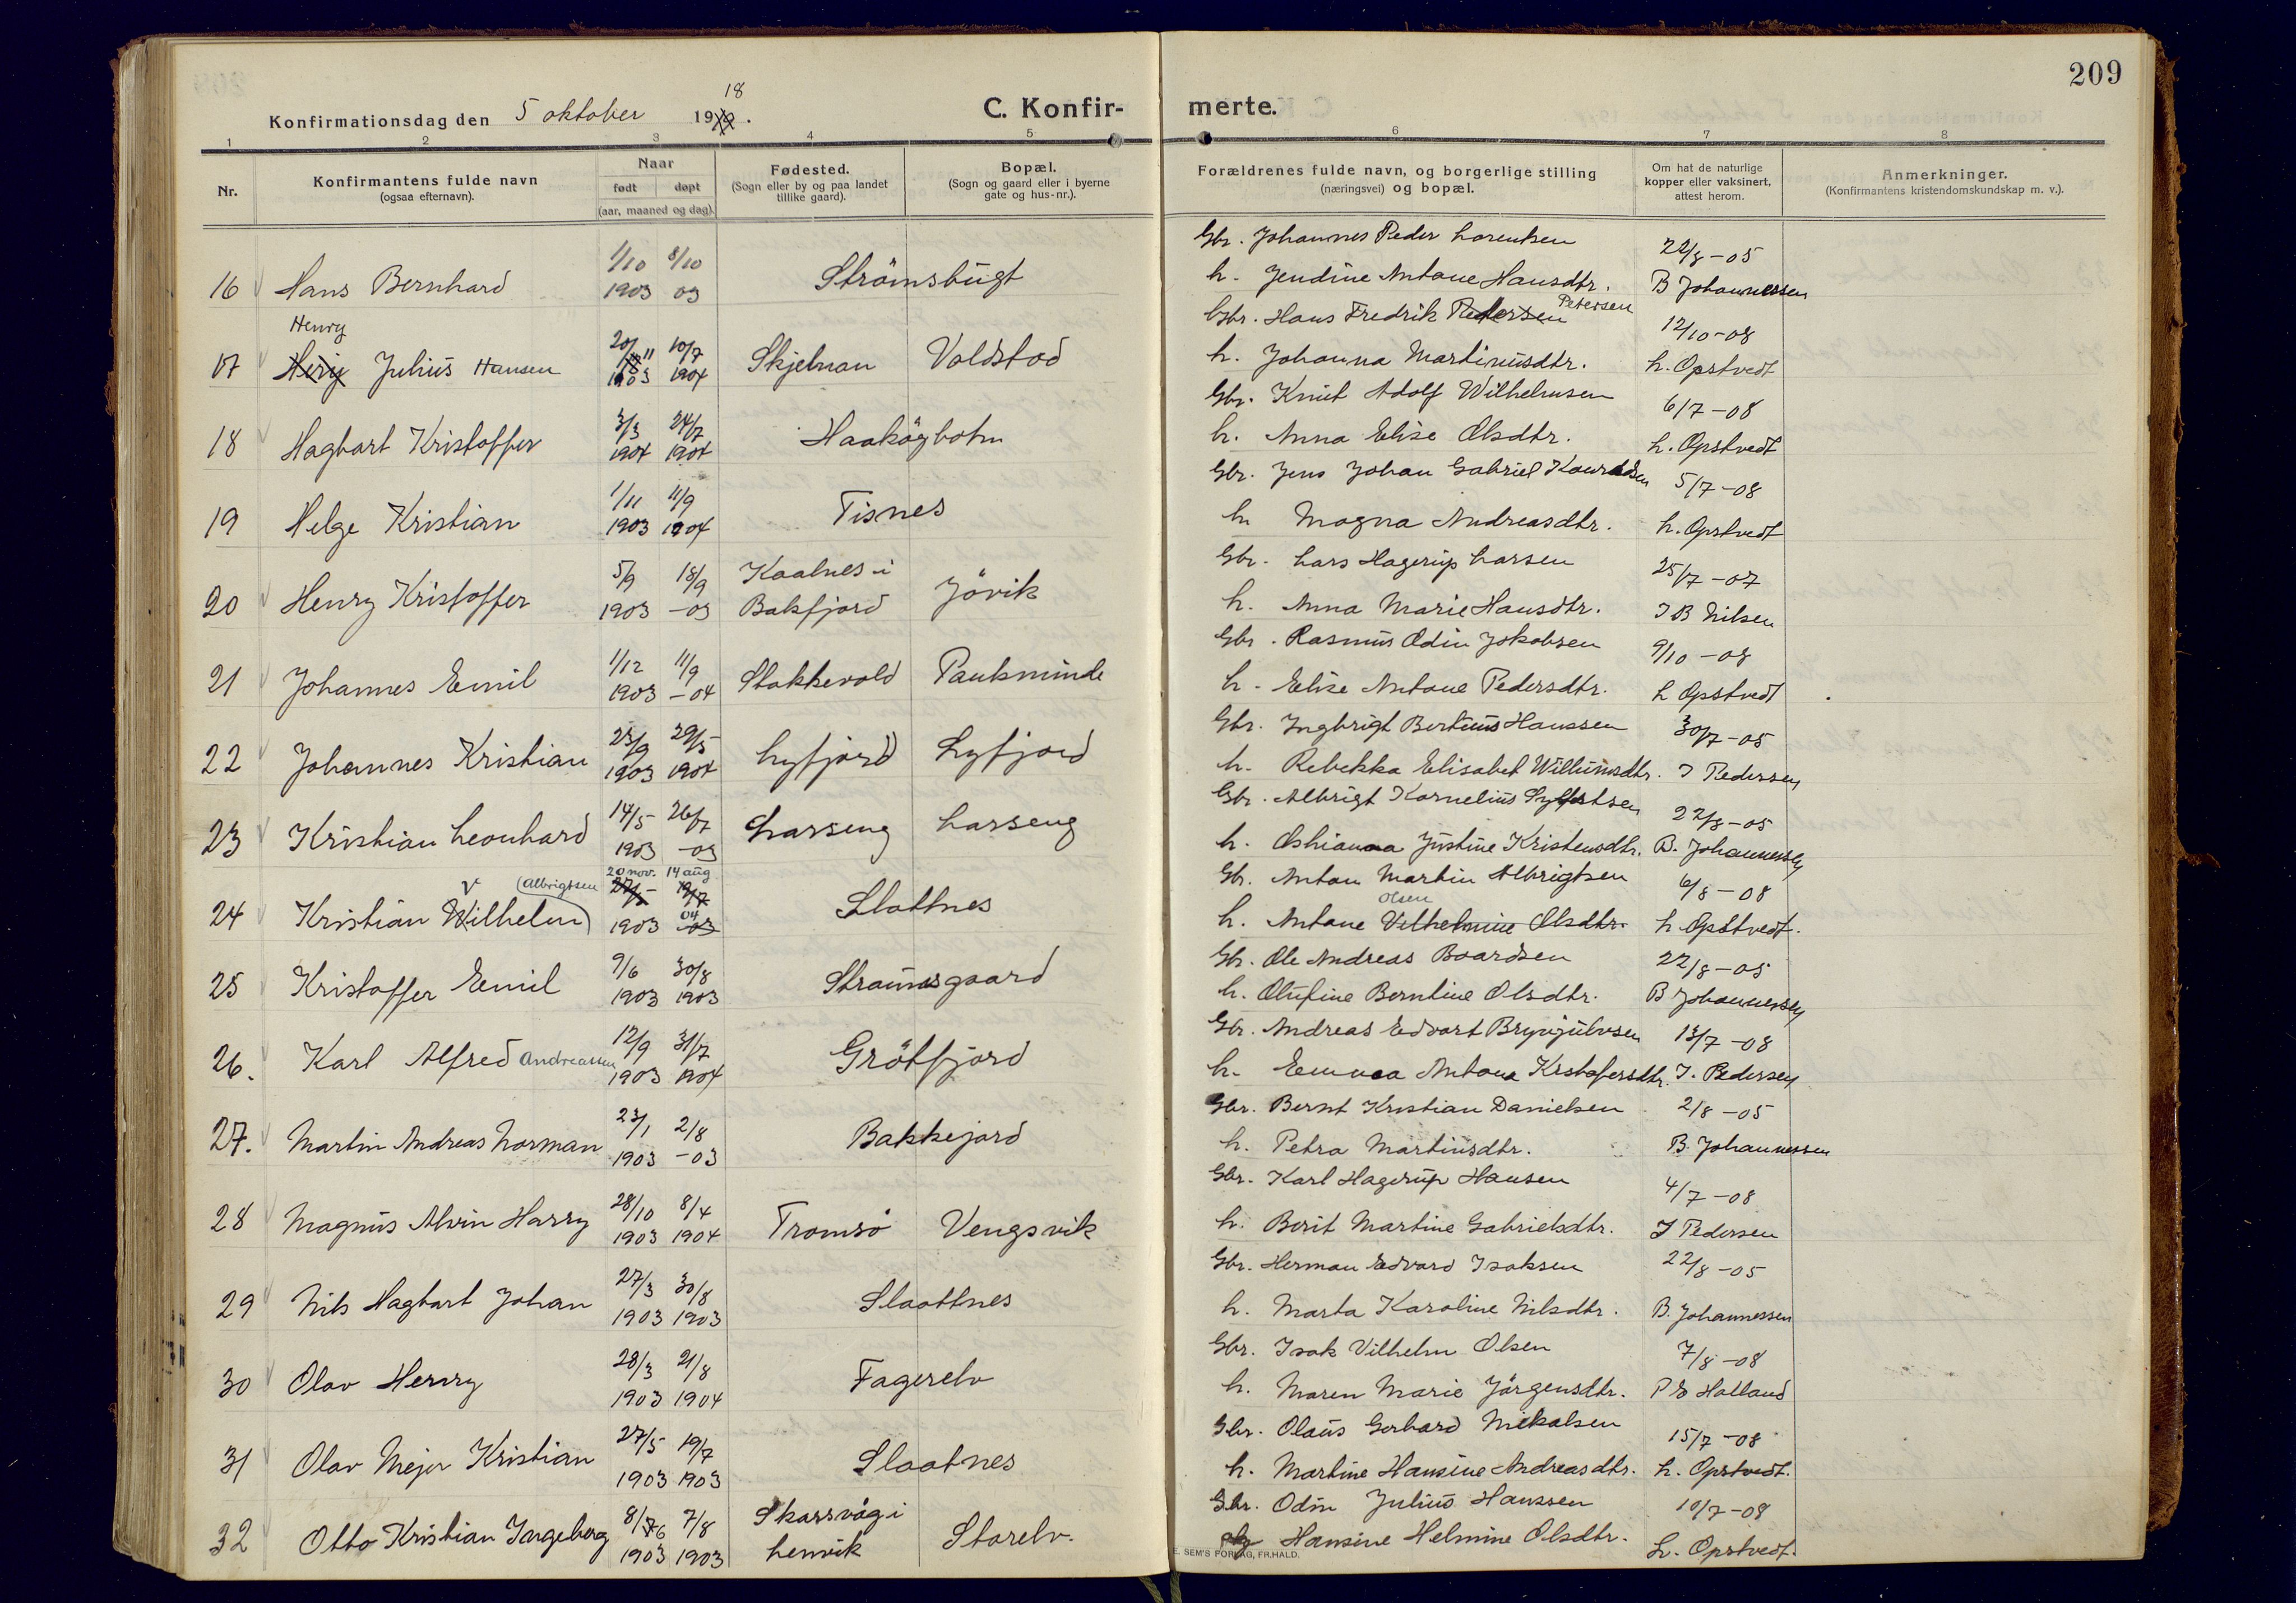 209
Konfirmationsdag den 5 oktober 1918.
C. Konfir-
merte.
1 2 3 4 5 6 7 8
Nr.
Konfirmantens fulde navn
(ogsaa efternavn).
Naar
født døpt
(aar, maaned og dag).
Fødested.
(Sogn eller by og paa landet
tillike gaard).
Bopæl.
(Sogn og gaard eller i byerne
gate og hus-nr.).
Forældrenes fulde navn, og borgerlige stilling
(næringsvei) og bopæl.
Om hat de naturlige
kopper eller vaksinert,
attest herom.
Anmerkninger.
(Konfirmantens kristendomskundskap m. v.).
Gbr. Johannes Peder Lorentsen 22/8 -05
16 Hans Bernhard 1/10 1903 8/10 03 Strömsbugt
h. Jendine Antone Hansdtr. B Johannessen
Gbr. Hans Fredrik Pedersen Petersen 12/10-08
17 Henry Julius Hansen 20/11 1903 10/7 1904 Skjelnan Voldstad
h. Johanna Martinusdtr. L. Opstvedt
Gbr. Knut Adolf Wilhelmsen 6/7-08
18 Hagbart Kristoffer 3/3 1904 24/7 1904 Haaköybotn
h. Anna Elise Olsdtr. L. Opstvedt
Gbr. Jens Johan Gabriel 5/7-08
19 Helge Kristian 1/11 1903 11/9 1904 Tisnes
h. Magna Andreasdtr. L. Opstvedt
Gbr. Lars Hagerup Larsen 25/7-07
20 Henry Kristoffer 5/9 1903 18/9 -03 Kaalnes i Balsfjord Jövik
h. Anna Marie Hansdtr. J B Nilsen
Gbr. Rasmus Odin Jakobsen 9/10-08
21 Johannes Emil 1/12 1903 11/9 -04 Stakkevold Pauksminde
h. Elise Antone Pedersdtr. L Opstvedt
Gbr. Ingbrigt Bertius Hanssen 30/7-05
22 Johannes Kristian 23/9 1903 29/5 1904 Lyfjord Lyfjord
h. Rebekka Elisabet Willumsdtr. J Pedersen
Gbr. Albrigt Kornelius 22/8-05
23 Kristian Leonhard 14/5 1903 26/7 -03 Larseng Larseng
h. Justine Kristensdtr. B. Johannessen
Gbr. Anton Martin Albrigtsen 6/8-08
24 Kristian Vilhelm (Albrigtsen) 20 nov. 1903 14 aug 04 Slottnes
h. Antone Vilhelmine Olsdtr. Olsen L Opstvedt.
Gbr. Ole Andreas Baardsen 22/8-05
25 Kristoffer Emil 9/6 1903 30/8 1903 Straumsgaard
h. Olufine Berntine Olsdtr. B Johannessen
Gbr. Andreas Edvart Brynjulvsen 13/7-08
26. Karl Alfred Andreassen 12/9 1903 31/7 1904 Grötfjord
h. Emma Antona Kristofersdtr. J. Pedersen
Gbr. Bernt Kristian Danielsen 2/8-05
27. Martin Andreas Norman 23/1 1903 2/8 -03 Bakkejord
h. Petra Martinsdtr. B. Johannessen
Gbr. Karl Hagerup Hansen 4/7-08
28 Magnus Alvin Harry 28/10 1903 8/4 1904 Tromsö Vengsvik
h. Berit Martine Gabrielsdtr. J Pedersen
Gbr. Herman Edvard Isaksen 22/8-05
29 Nils Hagbart Johan 27/3 1903 30/8 1903 Slaattnes
h. Marta Karoline Nilsdtr. B. Johannessen
Gbr. Isak Vilhelm Olsen 7/8-08
30 Olav Henry 28/3 1903 21/8 1904 Fagerelv
h. Maren Marie Jörgensdtr. P E Holland
Gbr. Olaus Gerhard Mikalsen 15/7-08
31 Olav Mejer Kristian 27/5 1903 19/7 1903 Slaatnes
h. Martine Hansine Andreasdtr. L. Opstvedt.
Gbr. Odin Julius Hanssen 10/7-08
32 Otto Kristian Ingeberg 8/6 1903 7/8 1903 Skarsvåg i Lenvik Storelv.
Hansine Helmine Olsdtr. L. Opstvedt.
E. SEM'S FORLAG, FR.HALD.